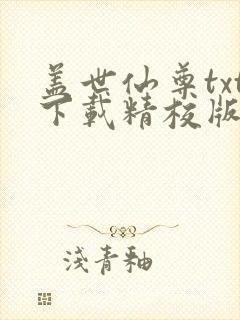 盖世仙尊txt
下载精校版
淺青釉